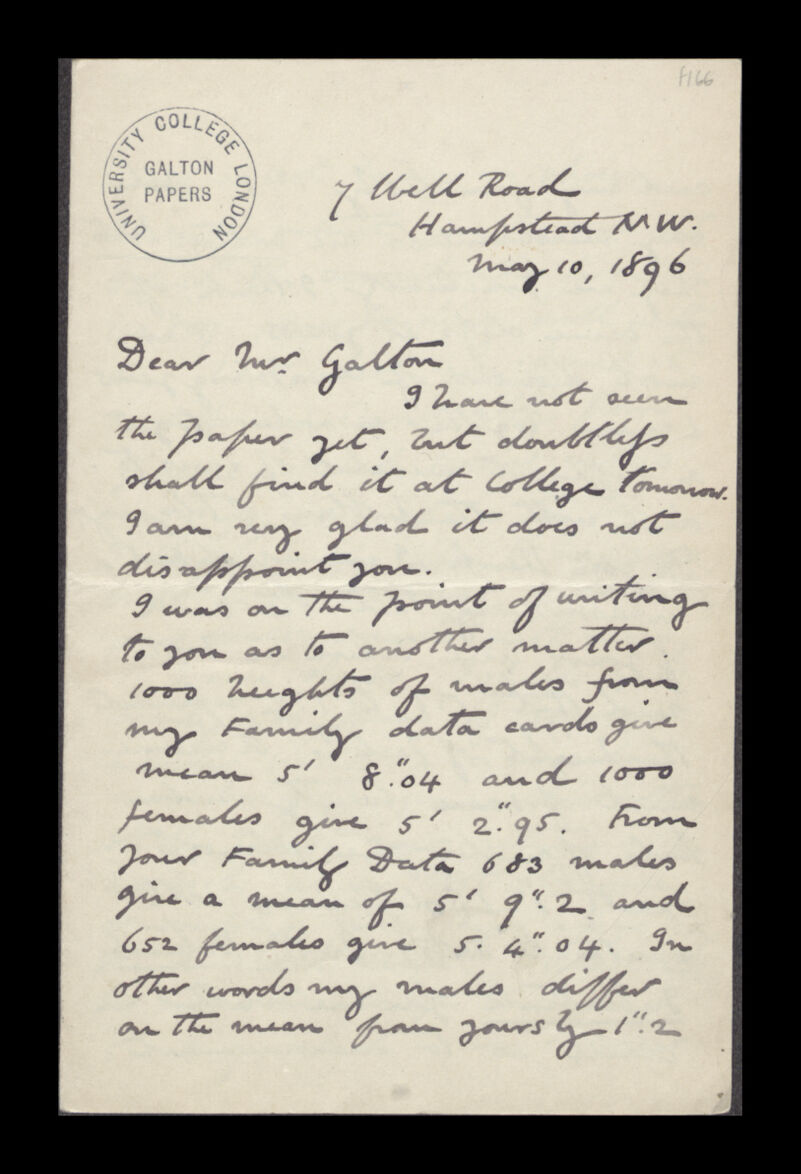 f166
UNIVERSITY COLLEGE LONDON
GALTON
PAPERS
7 Well Road
Hampstead N.W.
May 10, 1896
Dear Mr. Galton
I have not seen
the paper yet, but doubtless
shall find it at College tomorrow.
I am very glad it does not
disappoint you.
I was on the point of writing
to you as to another matter.
1000 heights of males from
my Family data cards give
mean 5' 8."04 and 1000
females give 5' 2."95. From
your Family Data 683 males
give a mean of 5' 9".2 and
652 females give 5. 4".04. In
other words my males differ
on the mean from yours by 1".2